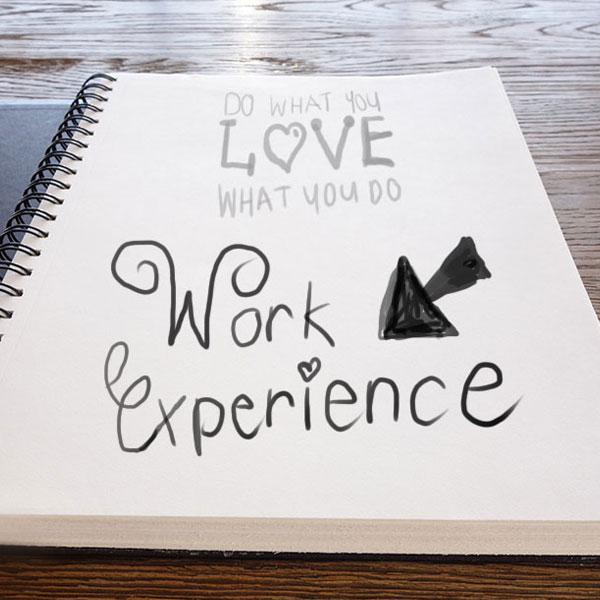 DO WHAT YOU
LOVE
WHAT YOU DO
Work
Experience